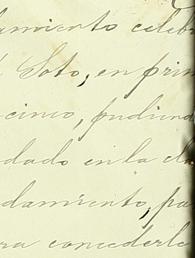 amiento celebr
Soto, en prim
cinco, pudiend
dado en la cla
damiento, pa
ra concederle